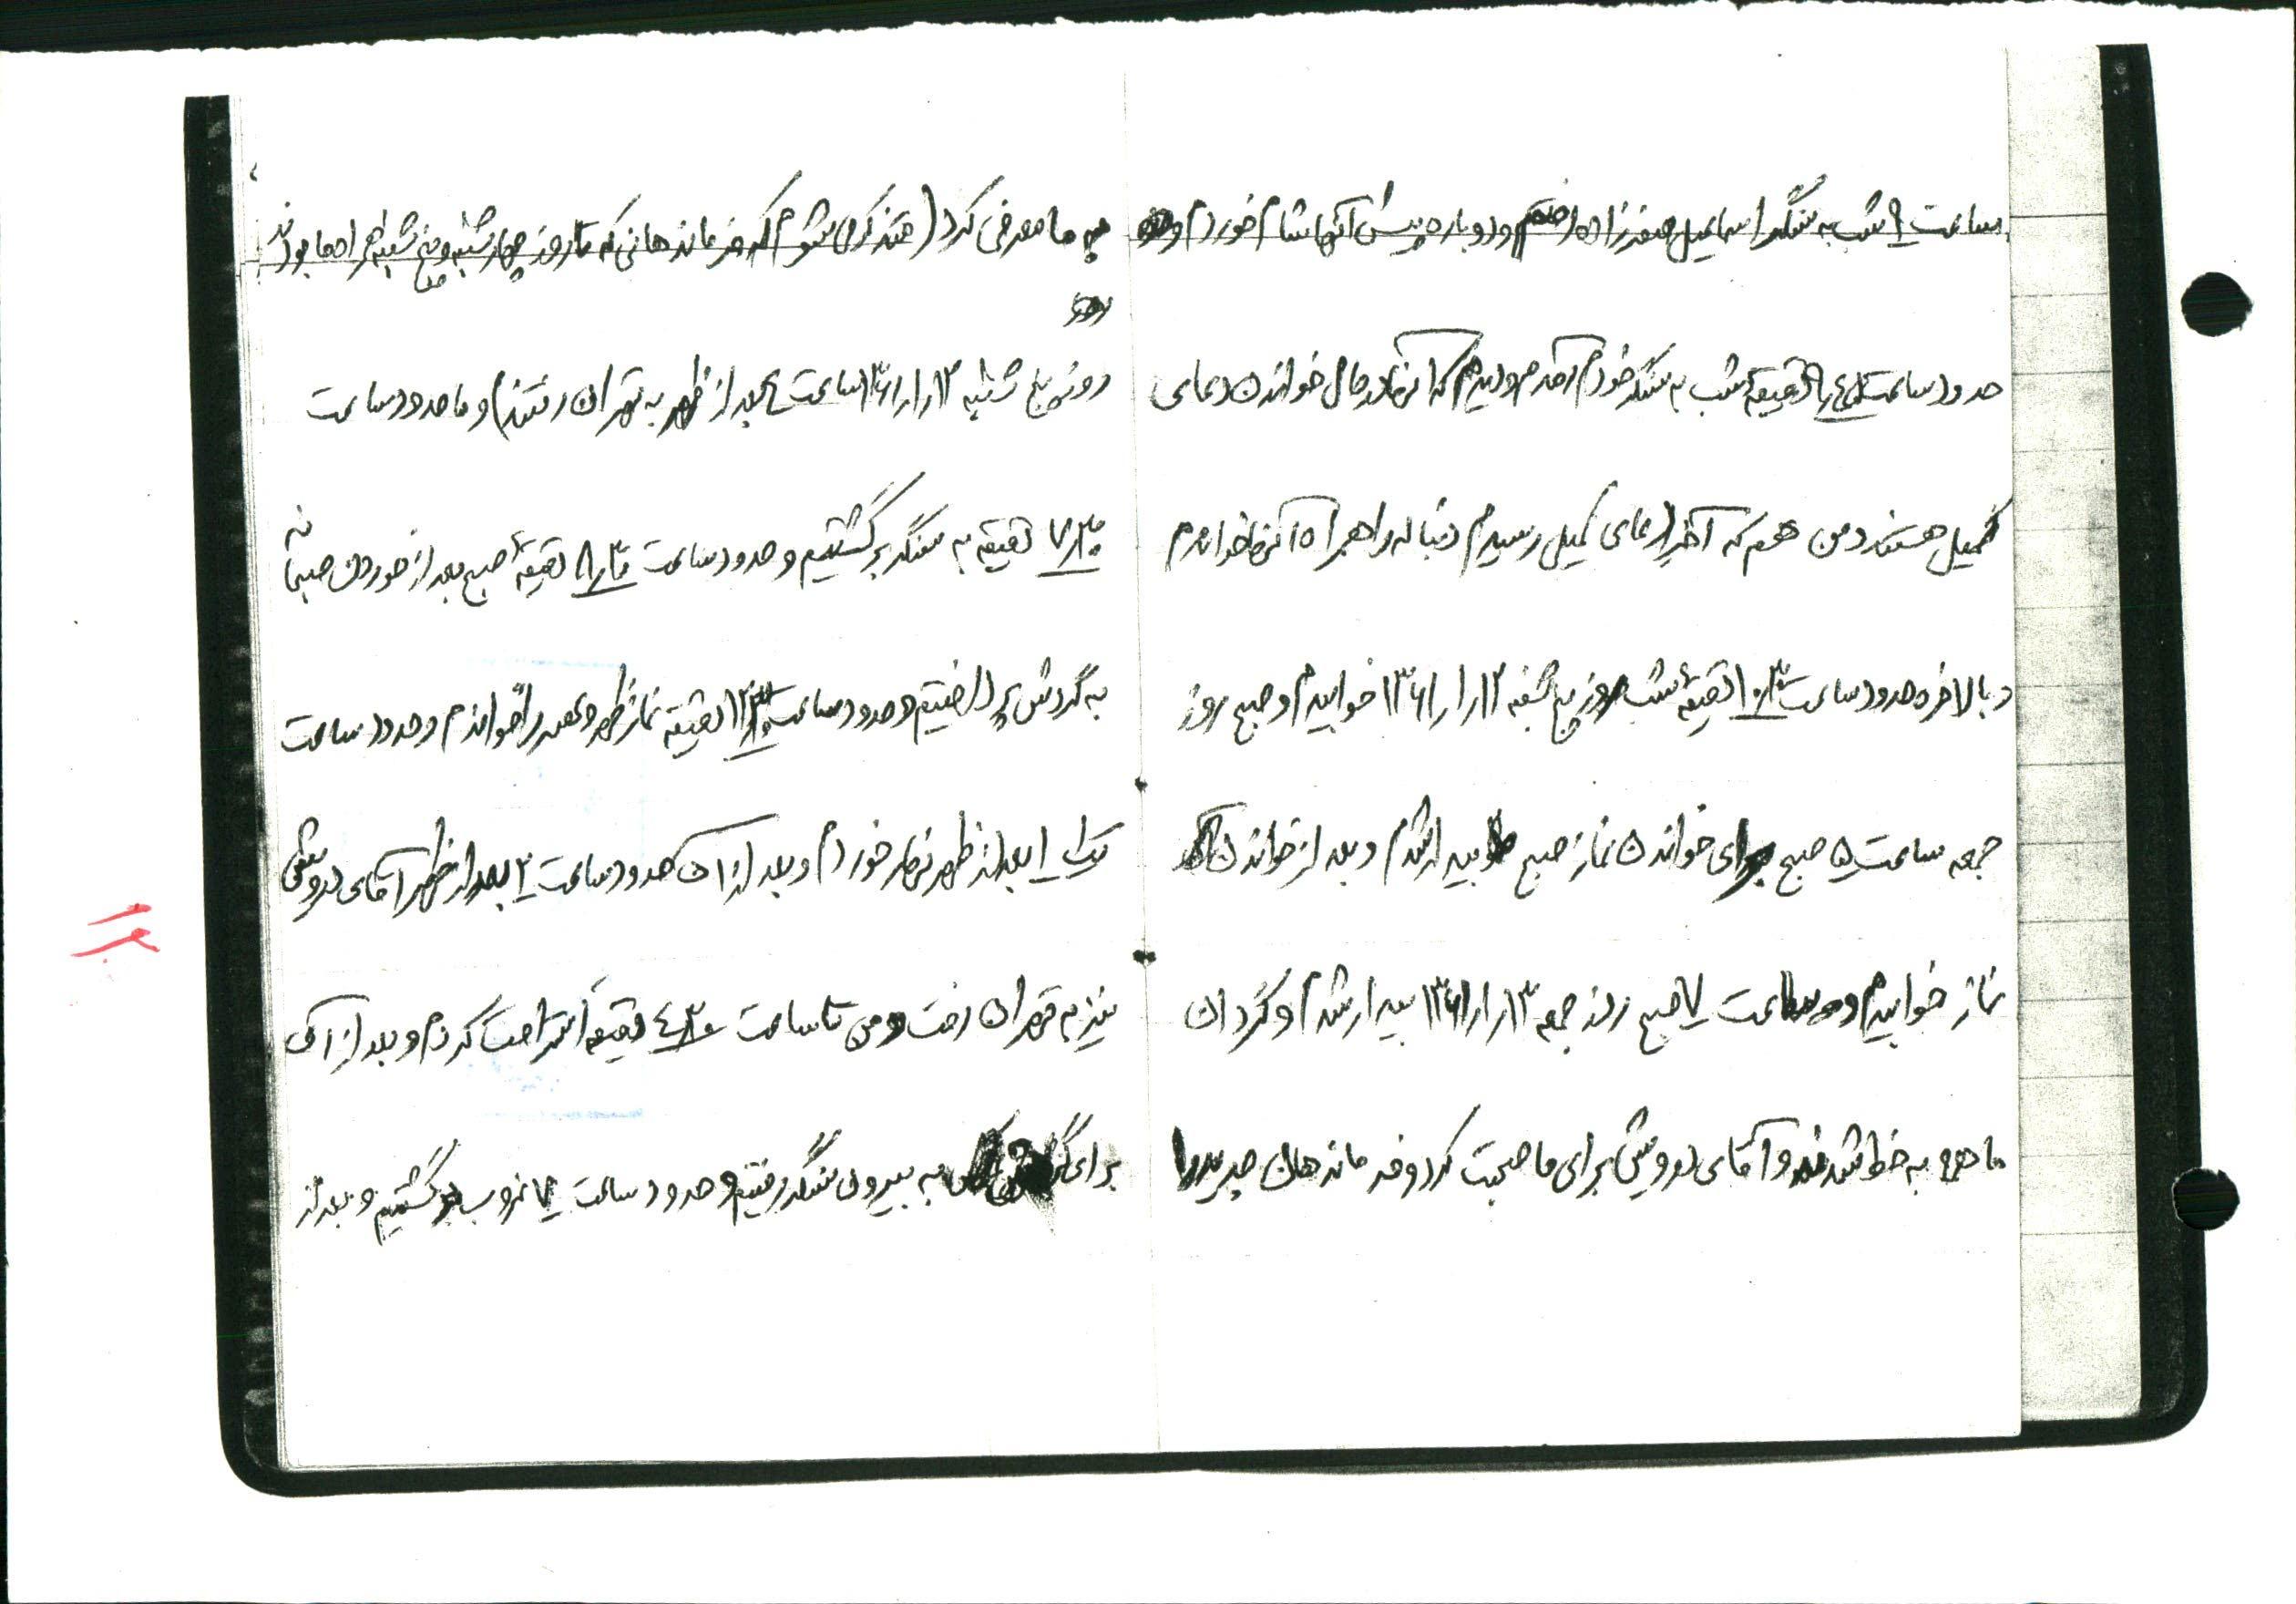 ساعت ۹ شب به سنگر اسماعیل صفرزاده رفتم و دوباره پیش آنها شام خوردم و
حدود ساعت ۹/۴۵ دقیقه شب به سنگر خودم آمدم و دیدم که آنها در حال خواندن دعای
کمیل هستند و من هم که آخر دعای کمیل رسیدم دنباله را همراه آنها خواندم
و بالاخره حدود ساعت ۱۰/۳۰ دقیقه شب روز پنج شنبه ۱۲/۱/۱۳۶۱ خوابیدم و صبح روز
جمعه ساعت ۵ صبح برای خواندن نماز صبح بیدار شدم و بعد از خواندن
نماز خوابیدم و ساعت ۷ صبح روز جمعه ۱۳/۱/۱۳۶۱ بیدار شدم و گردان
ما همه به خط شدند و آقای درویش برای ما صحبت کرد و فرماندهان جدید را
به ما معرفی کرد (متذکر می شوم که فرماندهانی که تا روز چهارشنبه و پنج شنبه همراه ما بودند
روز پنج شنبه ۱۲/۱/۱۳۶۱ ساعت ۴ بعد از ظهر به تهران رفتند) و ما حدود ساعت
۷/۳۰ دقیقه به سنگر برگشتیم و حدود ساعت ۸/۳۰ دقیقه صبح بعد از خوردن صبحانه
به گردش پرداختیم و حدود ساعت ۱۲/۳۰ دقیقه نماز ظهر و عصر را خواندم و حدود ساعت
یک ۱ بعد از ظهر نهار خوردم و بعد از آن حدود ساعت ۲ بعد از ظهر آقای درویش
نیز به تهران رفت و من تا ساعت ۴/۳۰ دقیقه استراحت کردم و بعد از آن
برای به بیرون سنگر رفتیم و حدود ساعت ۷ غروب برگشتیم و بعد از